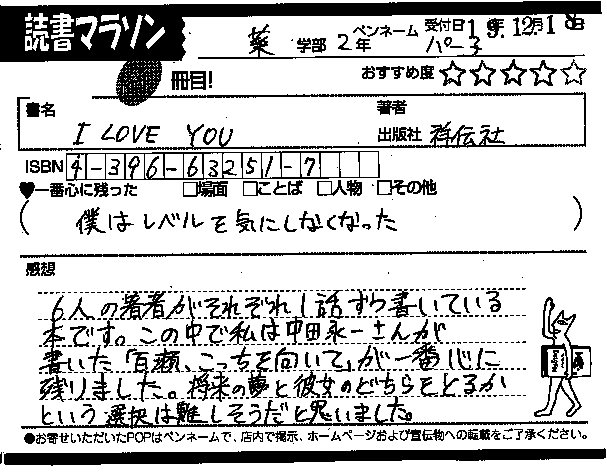 読書マラソン
薬 学部 2年 ペンネーム パ一子 受付日 19年12月18日
冊目!
おすすめ度 ☆☆☆☆☆
書名 著者
I LOVE YOU 出版社 祥伝社
ISBN 4-396-63251-7
♥一番心に残った □場面 □ことば □人物 □その他
( 僕はレベルを気にしなくなった )
感想
6人の著者がそれぞれ1話ずつ書いている
本です。この中で私は中田永一さんが
書いた「百瀬、こっちを向いて」が一番心に
残りました。将来の夢と彼女のどちらをとるか
という選択は難しそうだと思いました。
●お寄せいただいたPOPはペンネームで、店内で掲示、ホームページおよび宣伝物への転載をご了承ください。